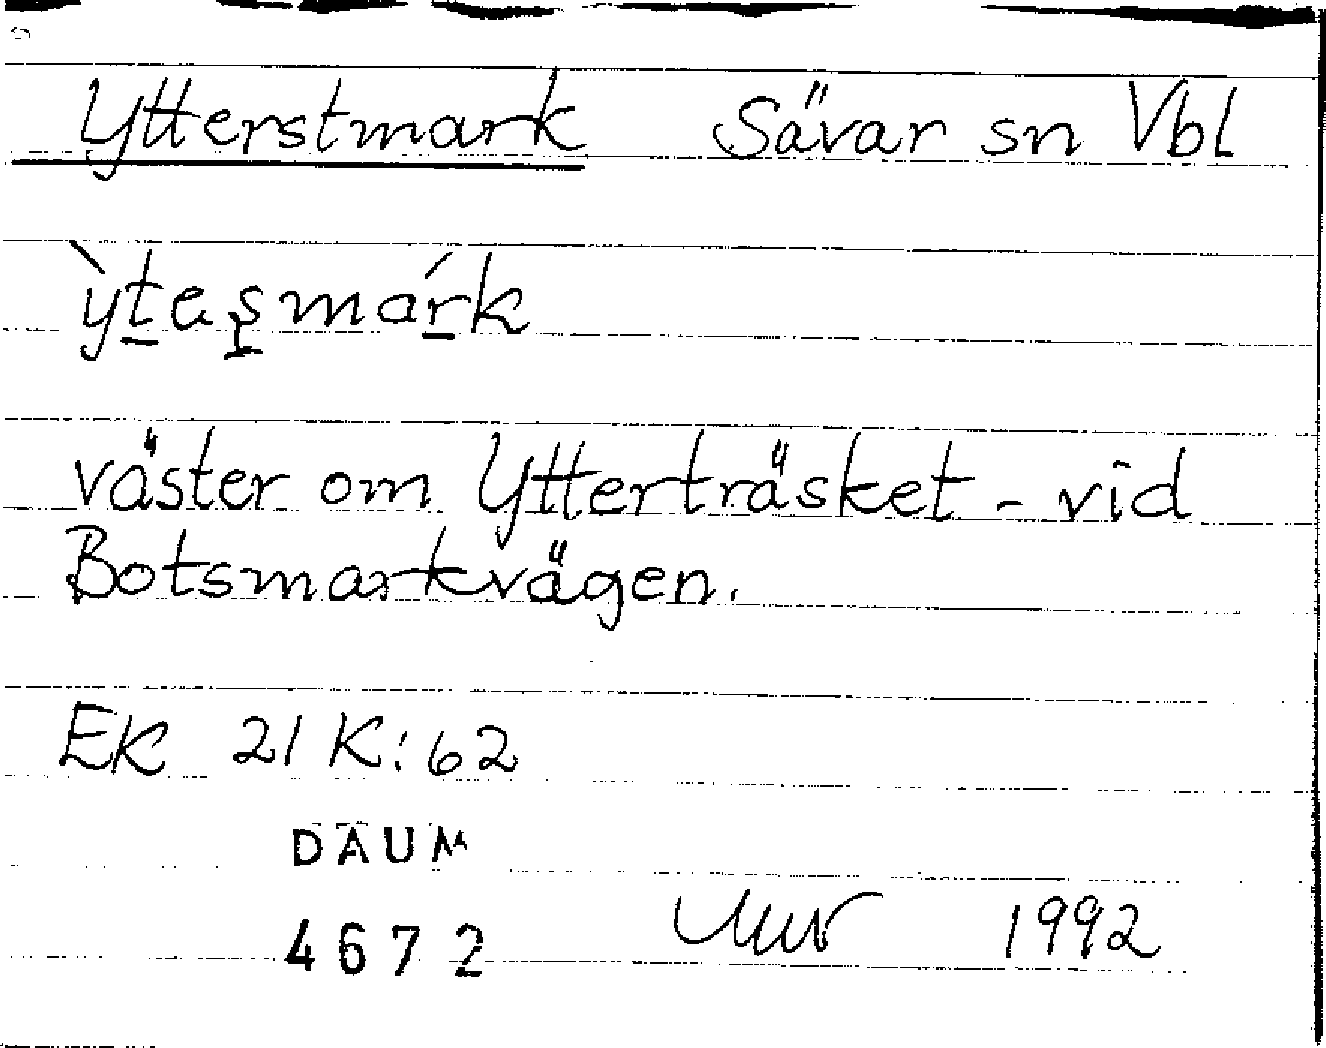 Ytterstmark Sävar sn Vbl
ỳt̲eʂmár̲k
väster om Ytterträsket - vid
Botsmarkvägen.
EK 21 K:62
DAUM
4672 1992